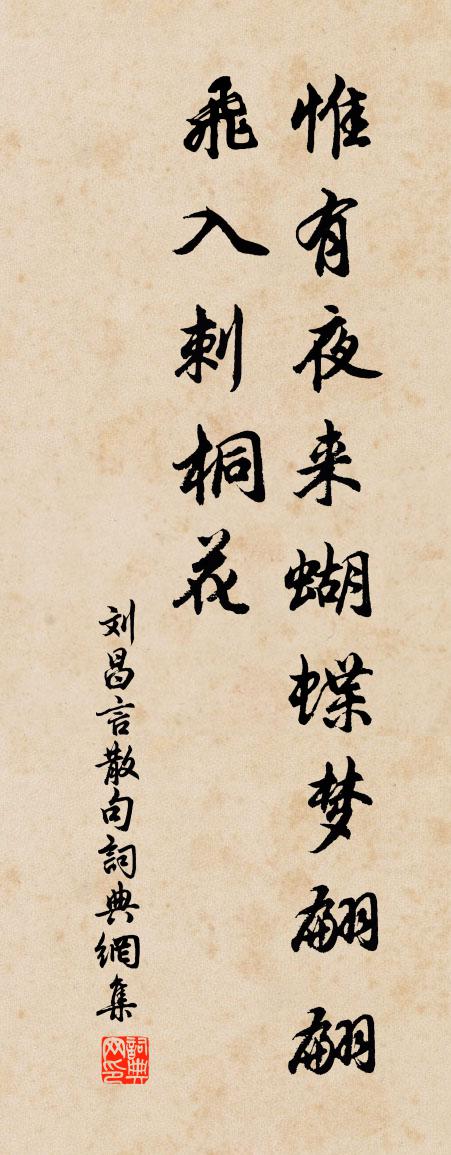 惟有夜来蝴蝶梦翩翩
飛入刺桐花
刘昌言散句詞典網集
詞典网印